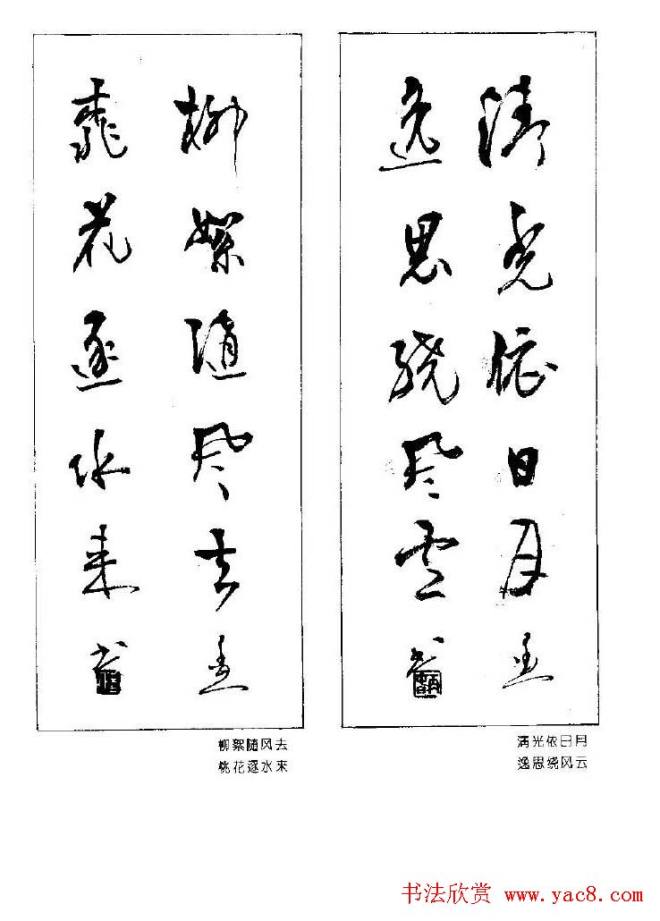 清光依日月
逸思绕风雲
柳絮随风去
桃花逐水来
满光依日月
逸思绕风云
柳絮随风去
桃花逐水来
书法欣赏 www.yac8.com